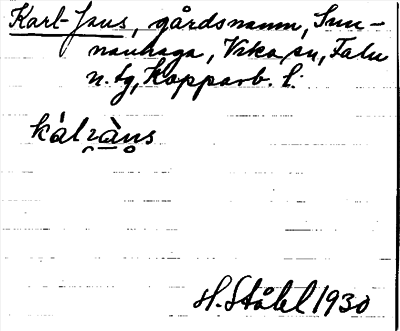 Karl-Jans, gårdsnamn, Sun-
nanhaga, Vika sn, Falu
n. tg, Kopparb. l.
kálràns
H. Ståhl 1930